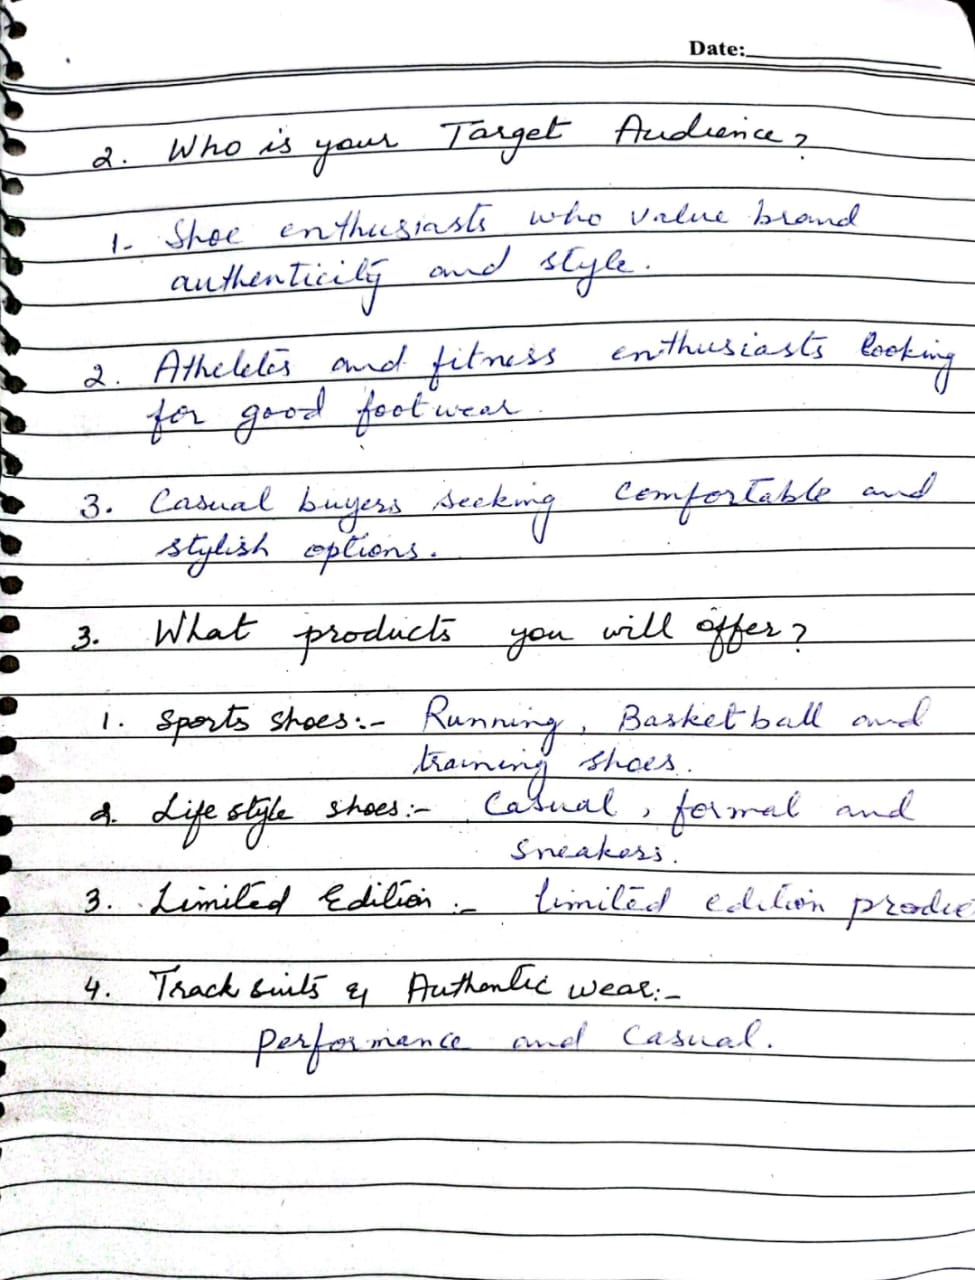 Date:
2. Who is your Target Audience?
1- Shoe enthusiasts who value brand
authenticity and style.
2. Atheletes and fitness enthusiasts looking
for good footwear.
3. Casual buyers seeking comfortable and
stylish options.
3. What products you will offer?
1. Sports shoes:- Running, Basketball and
training shoes.
2. Life style shoes:- Casual, formal and
sneakers.
3. Limited Edition:- Limited edition produc
4. Track suits & Authentic wear:-
Performance and Casual.